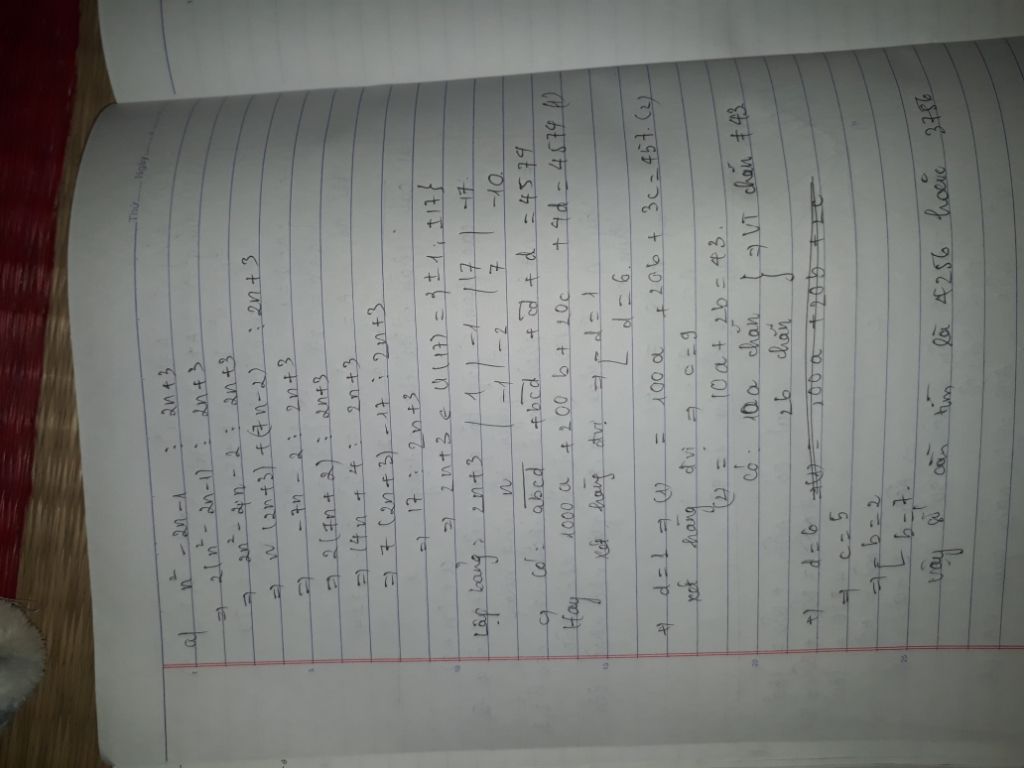 Thứ Ngày
a) n² - 2n - 1 ⋮ 2n+3
⇒ 2(n² - 2n - 1) ⋮ 2n+3
⇒ 2n² - 4n - 2 ⋮ 2n+3
⇒ n(2n+3) + (7n-2) ⋮ 2n+3
⇒ -7n - 2 ⋮ 2n+3
⇒ 2(7n+2) ⋮ 2n+3
⇒ 14n + 4 ⋮ 2n+3
⇒ 7(2n+3) - 17 ⋮ 2n+3
⇒ 17 ⋮ 2n+3
⇒ 2n+3 ∈ Ư(17) = {±1; ±17}
Lập bảng: 2n+3 | 1 | -1 | 17 | -17
n | -1 | -2 | 7 | -10
c) Có: abcd + bcd + cd + d = 4574
Hay 1000a + 200b + 20c + 4d = 4574 (1)
xét hàng đvị ⇒ [ d = 1
[ d = 6
+) d = 1 ⇒ (1) = 100a + 20b + 3c = 457. (2)
xét hàng đvi ⇒ c = 9
(2) = 10a + 2b = 43.
Có: 10a chẵn } ⇒ VT chẵn ≠ 43
2b chẵn
+) d = 6 ⇒ (1) = 100a + 20b +
⇒ c = 5
⇒ [ b = 2
[ b = 7
Vậy số cần tìm là 4256 hoặc 3756